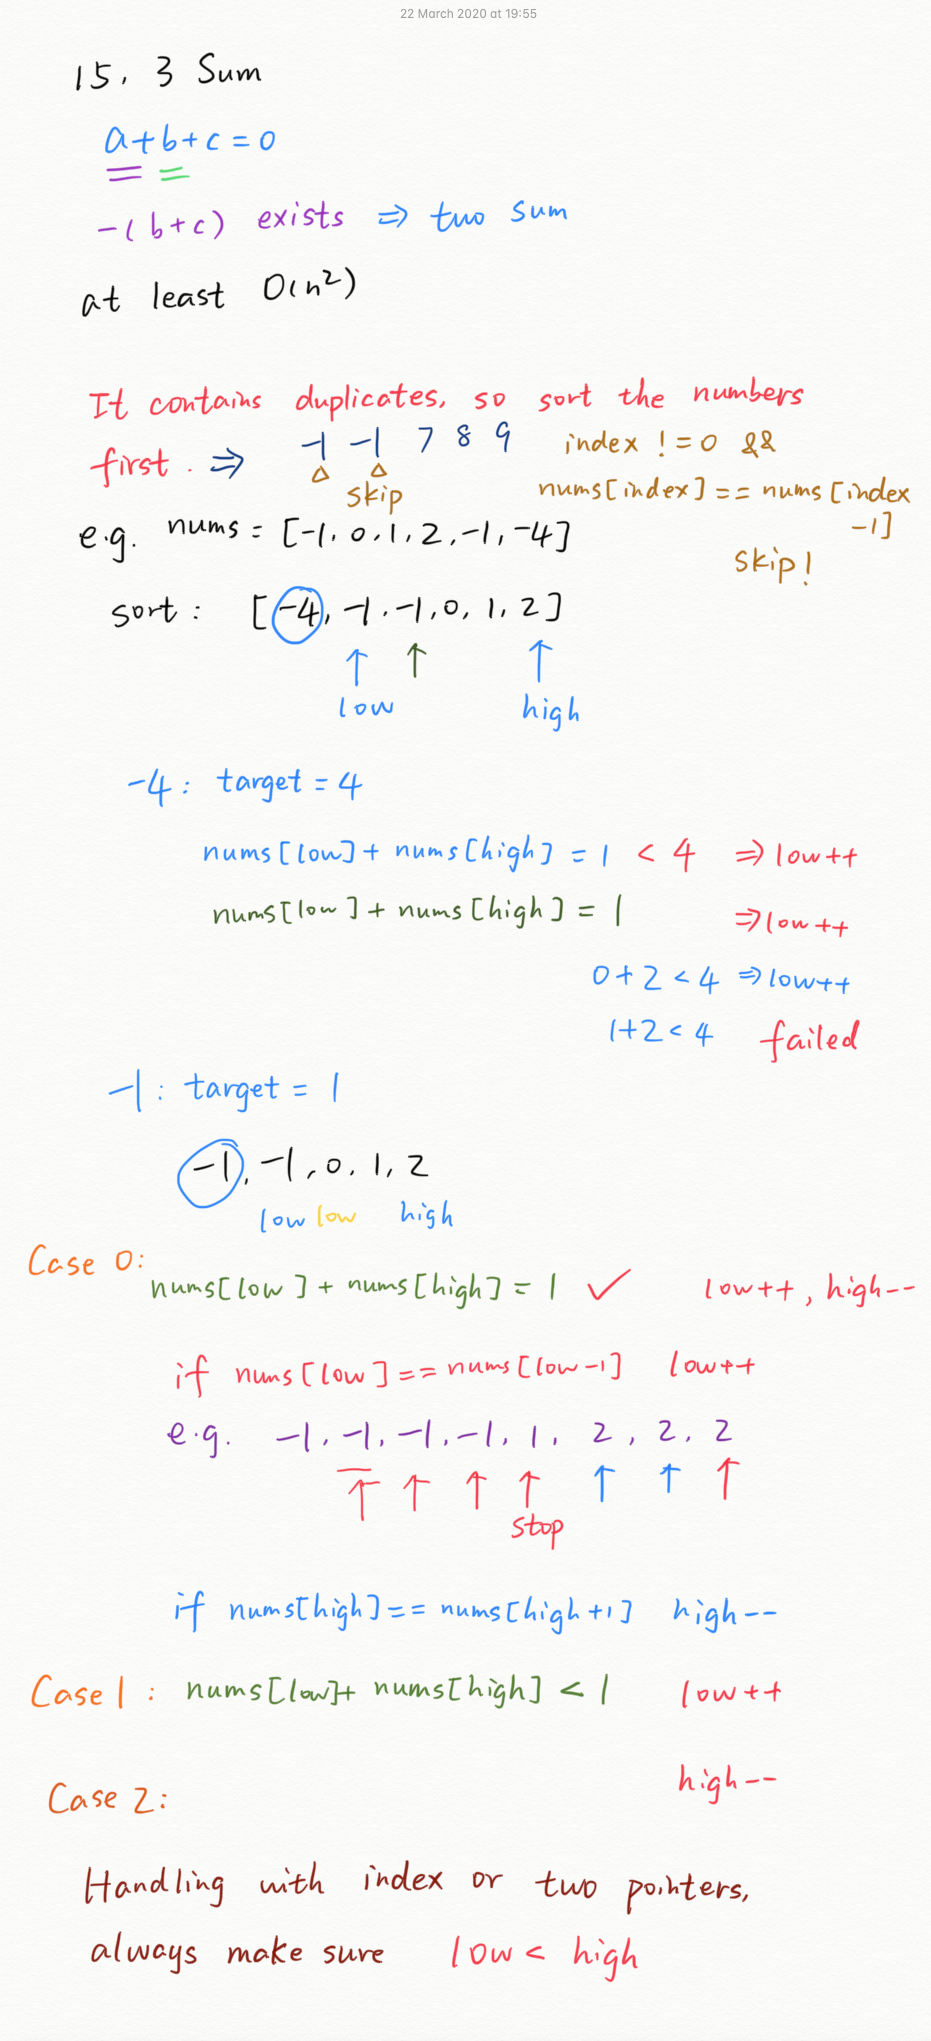 22 March 2020 at 19:55
15. 3 Sum
a+b+c=0
-(b+c) exists ⇒ two sum
at least O(n²)
It contains duplicates, so sort the numbers
first. ⇒ -1 -1 7 8 9 index != 0 &&
skip nums[index] == nums[index
-1]
e.g. nums = [-1, 0, 1, 2, -1, -4]
skip!
sort: [-4, -1, -1, 0, 1, 2]
↑ ↑ ↑
low high
-4: target = 4
nums[low] + nums[high] = 1 < 4 ⇒ low++
nums[low] + nums[high] = 1 ⇒ low++
0+2 < 4 ⇒ low++
1+2 < 4 failed
-1: target = 1
-1, -1, 0, 1, 2
low low high
Case 0:
nums[low] + nums[high] = 1 ✓ low++, high--
if nums[low] == nums[low-1] low++
e.g. -1, -1, -1, -1, 1, 2, 2, 2
↑ ↑ ↑ ↑ ↑ ↑ ↑
stop
if nums[high] == nums[high+1] high--
Case 1: nums[low]+ nums[high] < 1 low++
high--
Case 2:
Handling with index or two pointers,
always make sure low < high